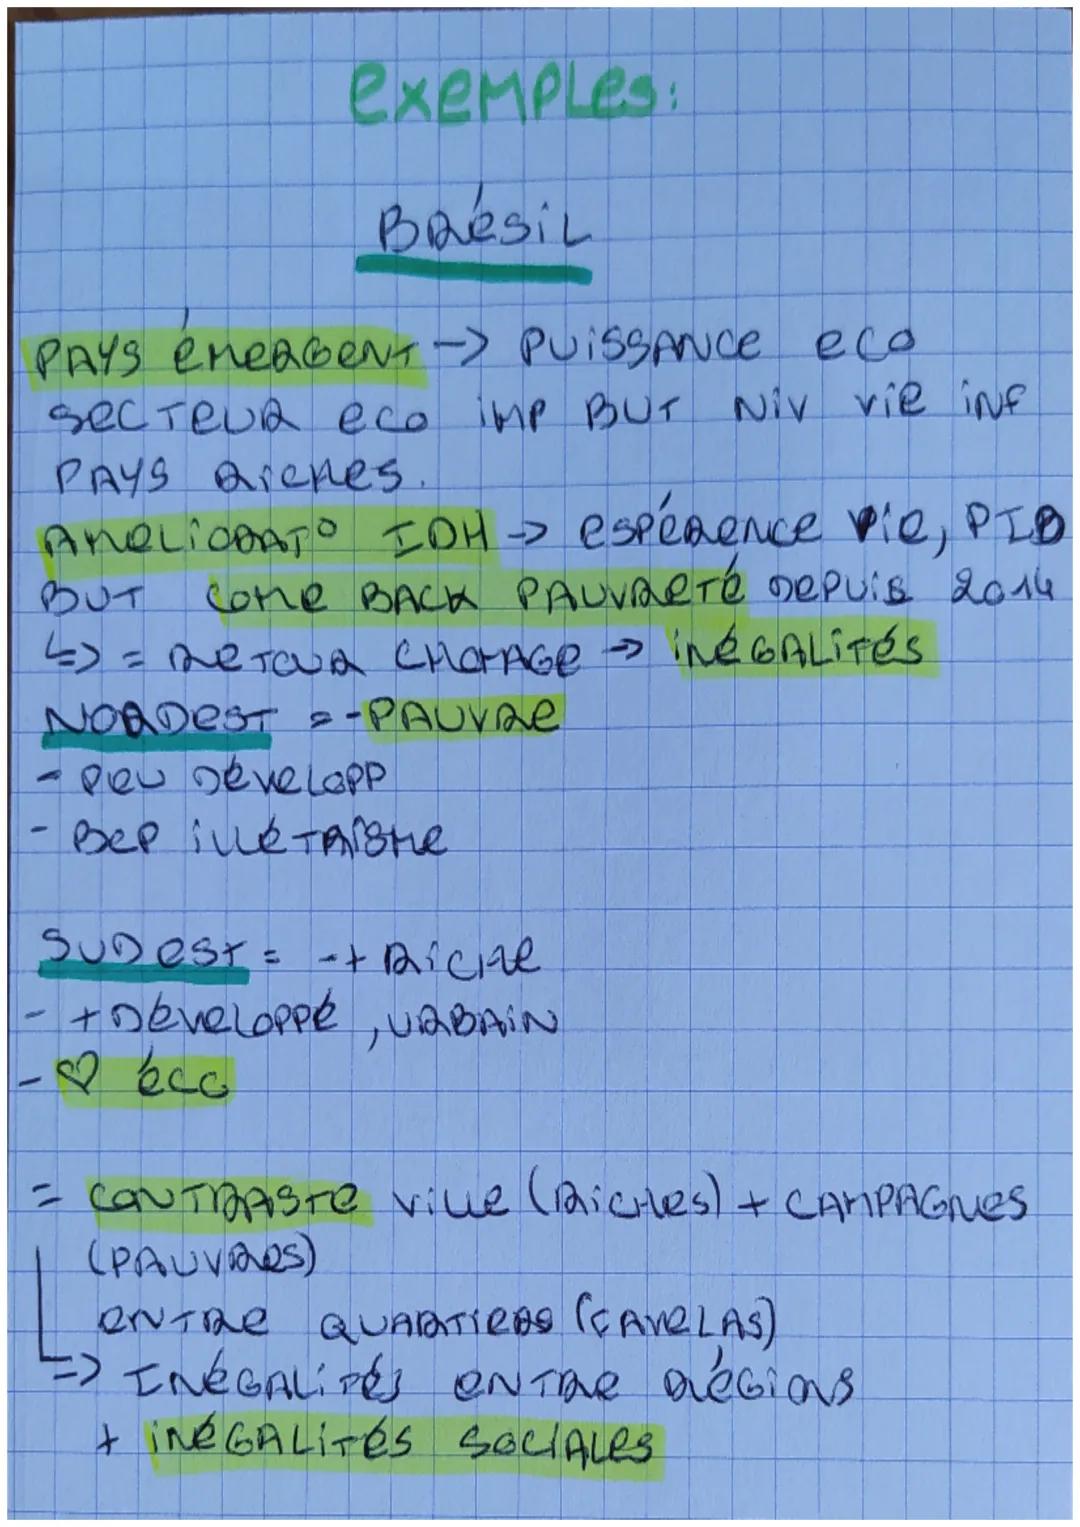 exemples:
BRésiL
PAYS émeRGENT -> PUiSSANCE eco
SECTEUR eco imp BUT Niv vie inf
PAYS Riches.
AmeLiORATº IDH -> espéRence vie, PIB
BUT come BACK PAUVReté Depuis 2014
↳> = ReTOUR CHOMAGE -> iNéGALités
NORDEST = - PAUVRe
- peu DéveLOPP
- Bcp illéTRisme
SUDEST = - + Riche
- + DéveLOPPé, URBAiN
- ♡ éco
= CONTRASTe ville (Riches) + CAMPAGNes
(PAUVRes)
eNTRe QUARTIERS (FAveLAS)
=> INÉGALitéS eNTRe RéGiONS
+ iNéGALités SOCiALeS